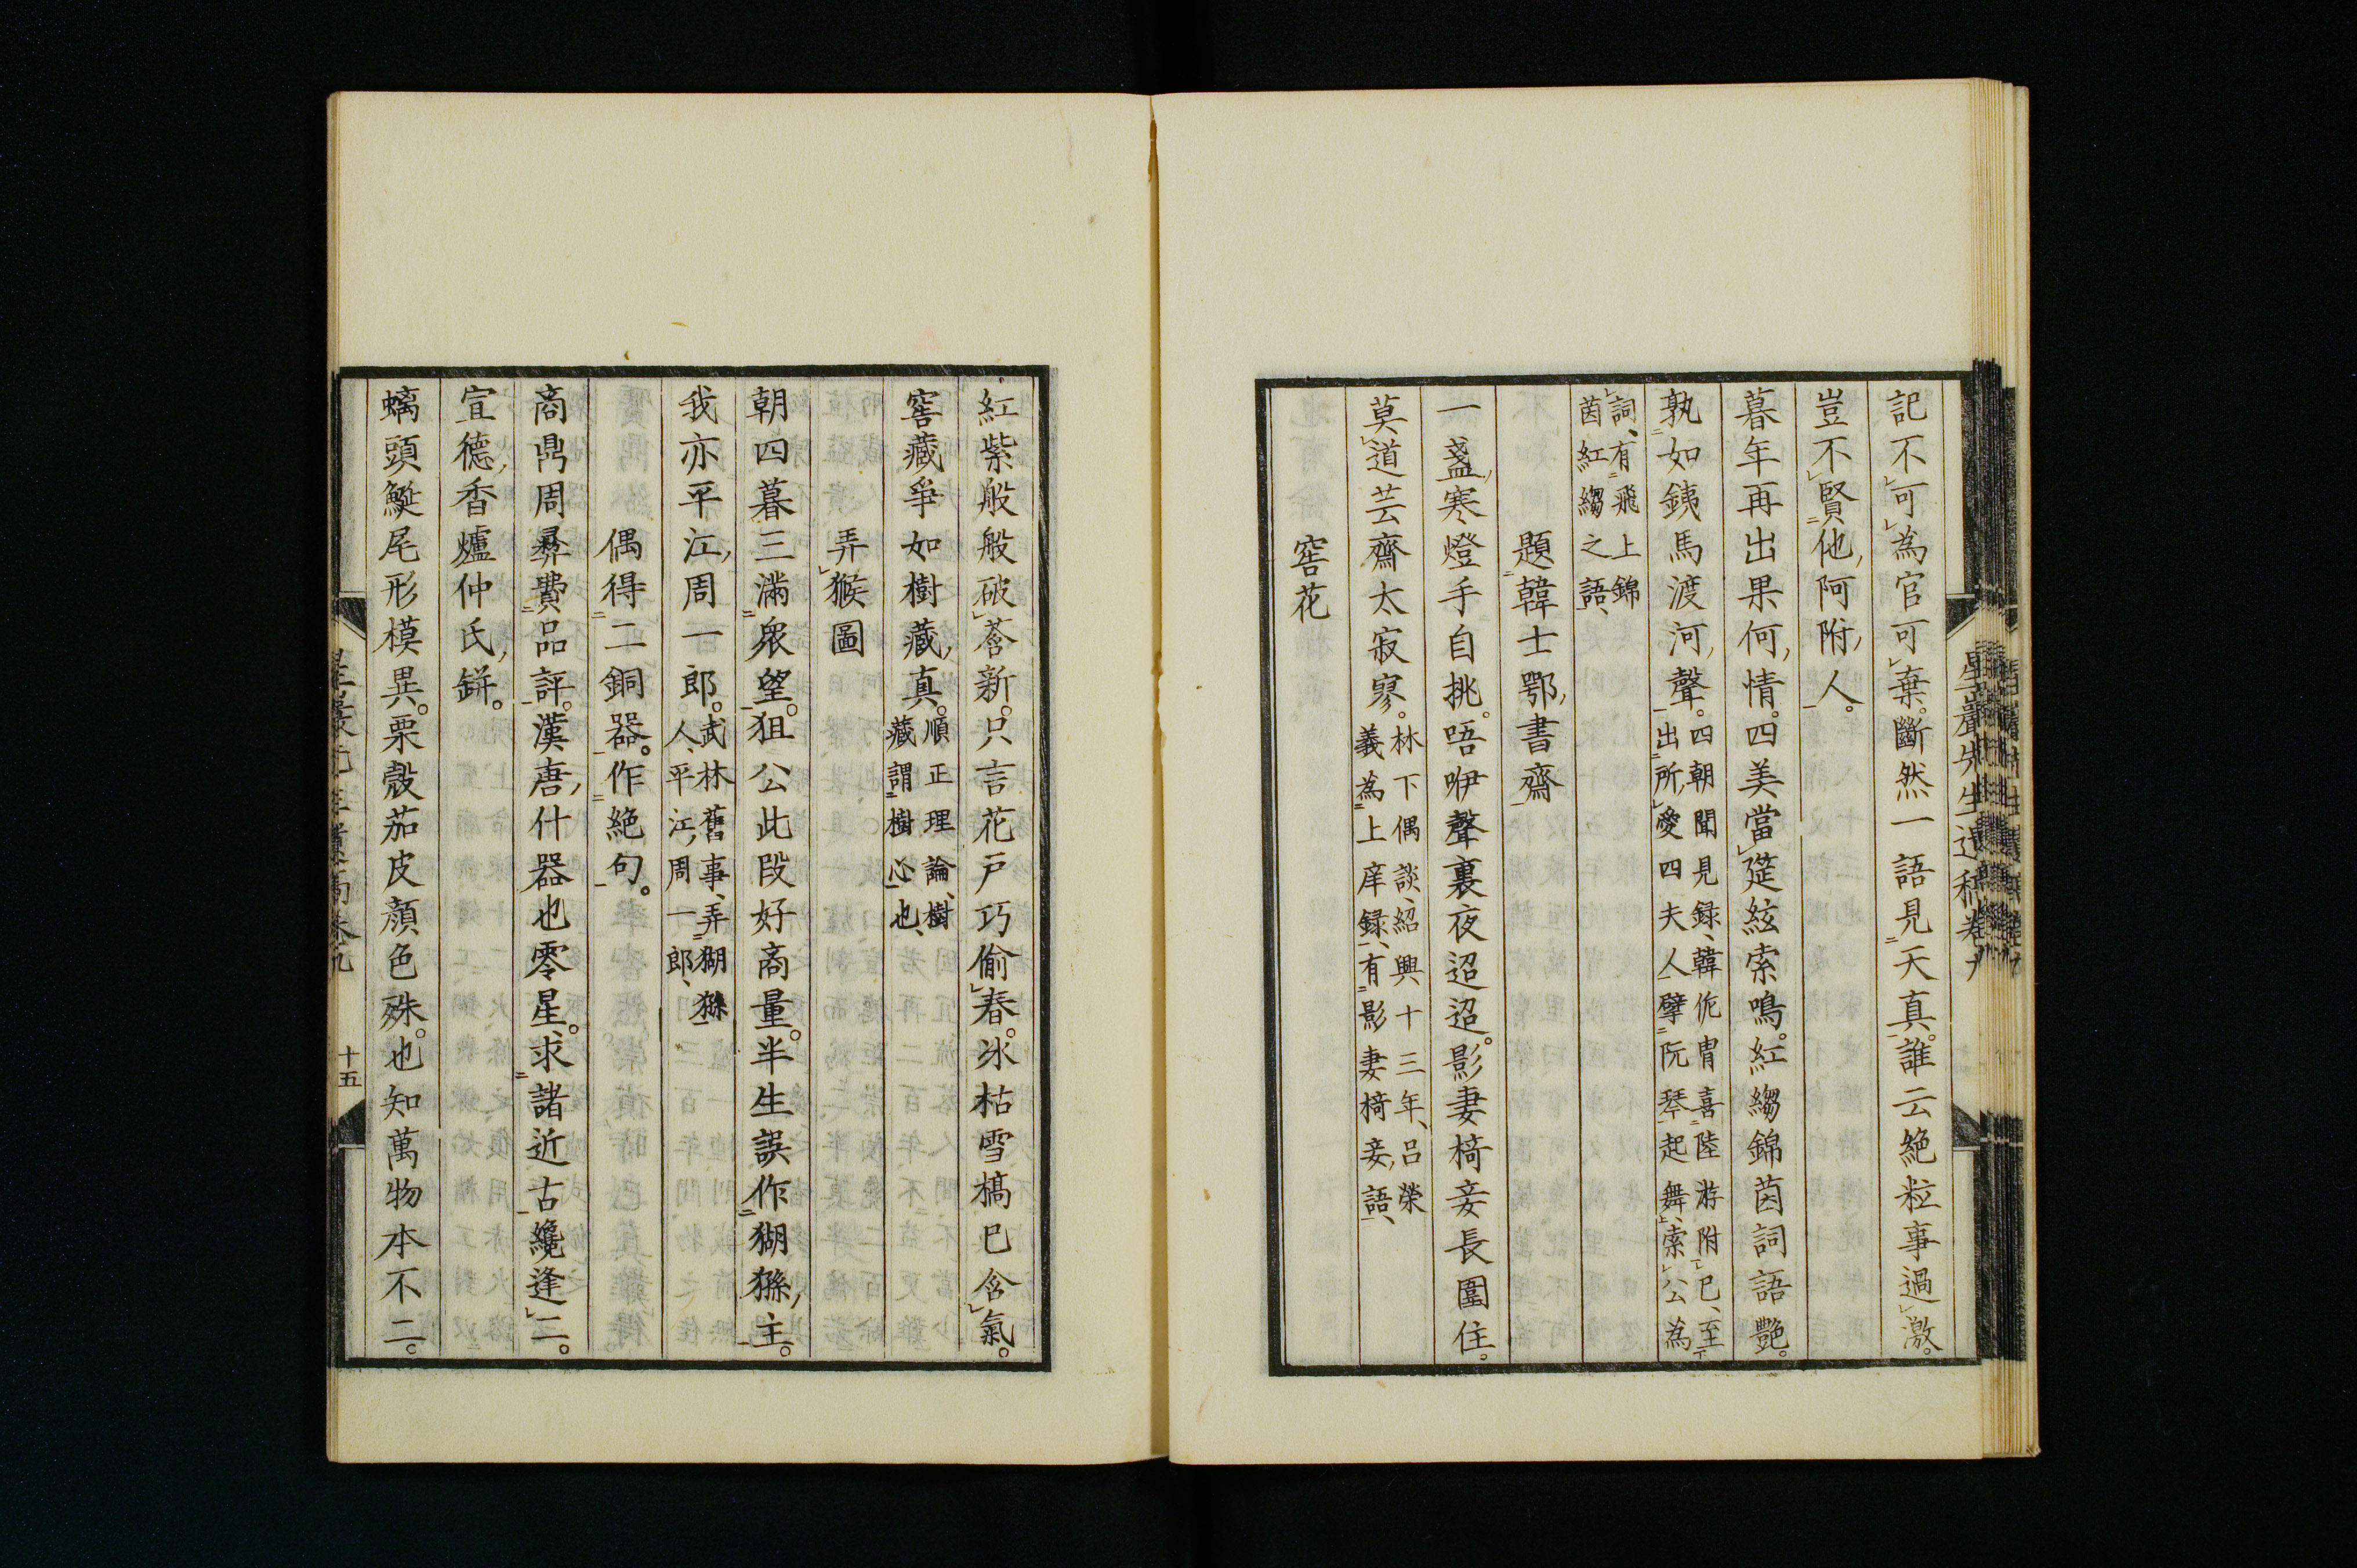 記不可為官可棄。斷然一語見天真。誰云絶粒事過激。
豈不賢他阿附人。
暮年再出果何情。四美當筵絃索鳴。紅縐錦茵詞語艶。
孰如銕馬渡河聲。四朝聞見録、韓侂冑喜陸游附己、至
出所愛四夫人擘阮琴起舞、索公為
詞、有飛上錦
茵紅縐之語、
題韓士鄂書齋
一盞寒燈手自挑。唔咿聲裏夜迢迢。影妻椅妾長圍住。
莫道芸齋太寂寥。林下偶談、紹興十三年、呂榮
義為上庠録、有影妻椅妾語、
窖花
紅紫般般破蒼新。只言花戸巧偷春。氷枯雪槁已含氣。
窖藏爭如樹藏真。順正理論、樹
藏謂樹心也、
弄猴圖
朝四暮三滿衆望。狙公此段好商量。半生誤作猢猻主。
我亦平江周一郎。武林舊事、弄猢猻
人、平江周一郎、
偶得二銅器。作絶句。
商鼎周彝費品評。漢唐什器也零星。求諸近古纔逢二。
宣德香爐仲氏鉼。
螭頭鯢尾形模異。栗殼茄皮顔色殊。也知萬物本不二。
十五